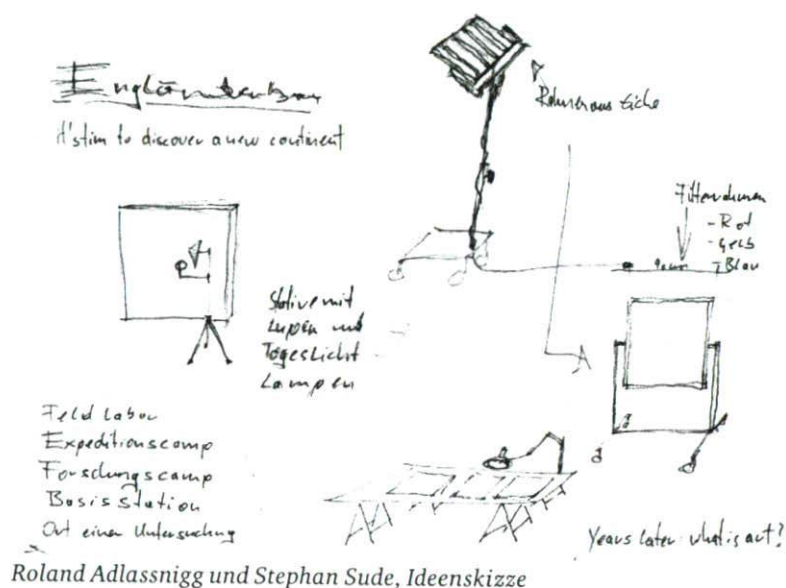 Engländerbau
it's tim to discover a new continent
Rahmen aus Eiche
Filterrahmen
- Rot
- Gelb
- Blau
Stative mit
Lupen und
Tageslicht
Lampen
Feld Labor
Expeditionscamp
Forschungscamp
Basis Station
Ort einer Untersuchung
Years later: what is art?
Roland Adlassnigg und Stephan Sude, Ideenskizze